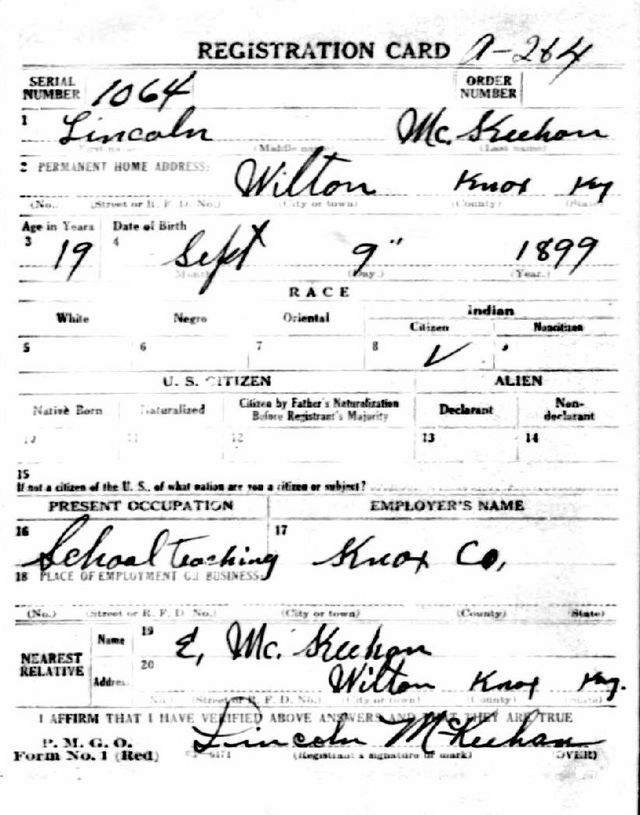 REGISTRATION CARD A-284
SERIAL NUMBER 1064 ORDER NUMBER
1 Lincoln Mc. Keehan
(First name) (Middle name) (Last name)
2 PERMANENT HOME ADDRESS:
Wilton Knox Ky
(No.) (Street or R. F. D. No.) (City or town) (County) (State)
Age in Years Date of Birth
3 19 4 Sept 9" 1899
(Month.) (Day.) (Year.)
RACE
White Negro Oriental Indian
Citizen Noncitizen
5 6 7 8 ✓ 9
U. S. CITIZEN ALIEN
Native Born Naturalized Citizen by Father's Naturalization Before Registrant's Majority Declarant Non-declarant
10 11 12 13 14
15
If not a citizen of the U. S., of what nation are you a citizen or subject?
PRESENT OCCUPATION EMPLOYER'S NAME
16 School teaching 17 Knox Co,
18 PLACE OF EMPLOYMENT OR BUSINESS:
(No.) (Street or R. F. D. No.) (City or town) (County) (State)
NEAREST RELATIVE Name 19 E, Mc. Keehan
Address 20 Wilton Knox Ky.
(No.) (Street or R. F. D. No.) (City or town) (County) (State)
I AFFIRM THAT I HAVE VERIFIED ABOVE ANSWERS AND THAT THEY ARE TRUE
P. M. G. O.
Form No. 1 (Red) Lincoln McKeehan
(Registrant's signature or mark) (OVER)